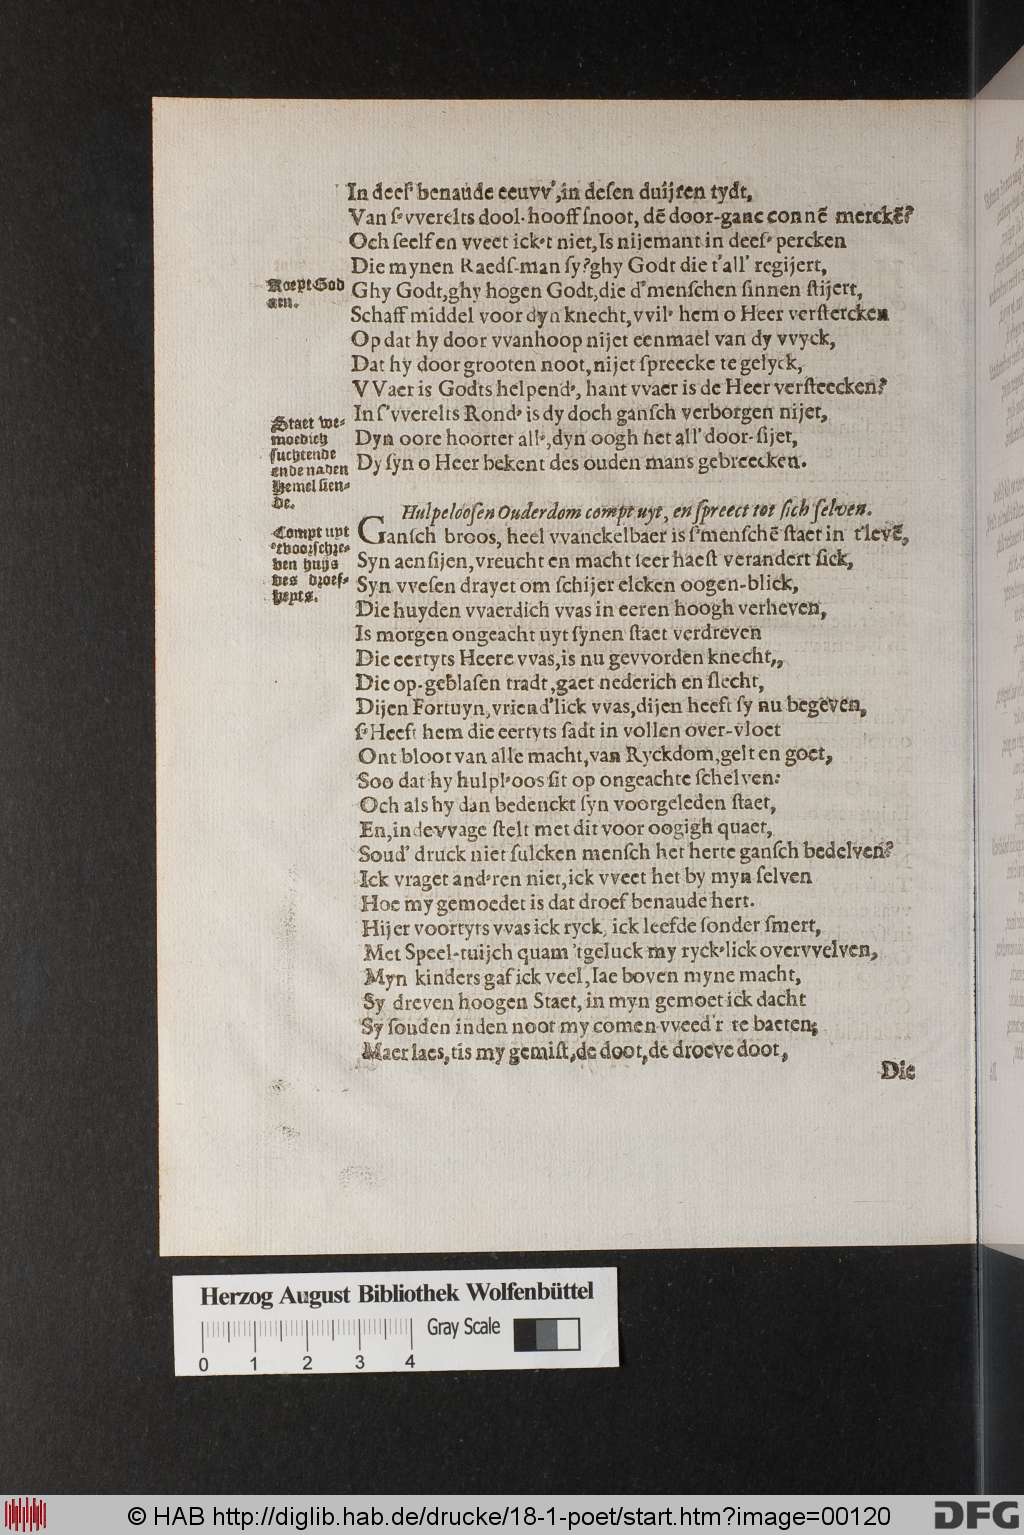 In deeſ' benaude eeuvv',in deſen duijſten tydt,
Van ſ'vverelts dool-hooff ſnoot, dē door-ganc connē merckē?
Och ſeelf en vveet ick't niet,Is nijemant in deeſ' percken
Die mynen Raedſ-man ſy?ghy Godt die t'all' regijert,
Roept God
aen.
Ghy Godt,ghy hogen Godt,die d'menſchen ſinnen ſtijert,
Schaff middel voor dyn knecht,vvil' hem o Heer verſtercken
Op dat hy door vvanhoop nijet eenmael van dy vvyck,
Dat hy door grooten noot,nijet ſpreecke te gelyck,
VVaer is Godts helpend', hant vvaer is de Heer verſteecken?
Staet we-
moedich
ſuchtende
ende na den
Hemel ſien-
de.
In ſ'vverelts Rond' is dy doch ganſch verborgen nijet,
Dyn oore hoortet all',dyn oogh het all' door-ſijet,
Dy ſyn o Heer bekent des ouden mans gebreecken.
Hulpelooſen Ouderdom compt uyt, en ſpreect tot ſich ſelven.
Compt uyt
'tvoorſchre-
ven huys
des droef-
heyts.
Ganſch broos, heel vvanckelbaer is ſ'menſchē ſtaet in t'levē,
Syn aenſijen,vreucht en macht ſeer haeſt verandert ſick,
Syn vveſen drayet om ſchijer elcken oogen-blick,
Die huyden vvaerdich vvas in eeren hoogh verheven,
Is morgen ongeacht uyt ſynen ſtaet verdreven
Die eertyts Heere vvas,is nu gevvorden knecht,,
Die op-geblaſen tradt,gaet nederich en ſlecht,
Dijen Fortuyn,vriend'lick vvas,dijen heeft ſy nu begeven,
ſ'Heeft hem die eertyts ſadt in vollen over-vloet
Ont bloot van alle macht,van Ryckdom,gelt en goet,
Soo dat hy hulpl'oos ſit op ongeachte ſchelven:
Och als hy dan bedenckt ſyn voorgeleden ſtaet,
En,in de vvage ſtelt met dit voor oogigh quaet,
Soud' druck niet ſulcken menſch het herte ganſch bedelven?
Ick vraget and'ren niet,ick vveet het by myn ſelven
Hoe my gemoedet is dat droef benaude hert.
Hijer voortyts vvas ick ryck, ick leefde ſonder ſmert,
Met Speel-tuijch quam 'tgeluck my ryck'lick overvvelven,
Myn kinders gaf ick veel,Iae boven myne macht,
Sy dreven hoogen Staet, in myn gemoet ick dacht
Sy ſouden inden noot my comen vveed'r te baeten;
Maer laes,tis my gemiſt,de doot,de droeve doot,
Die
Herzog August Bibliothek Wolfenbüttel
Gray Scale
0 1 2 3 4
© HAB http://diglib.hab.de/drucke/18-1-poet/start.htm?image=00120
DFG